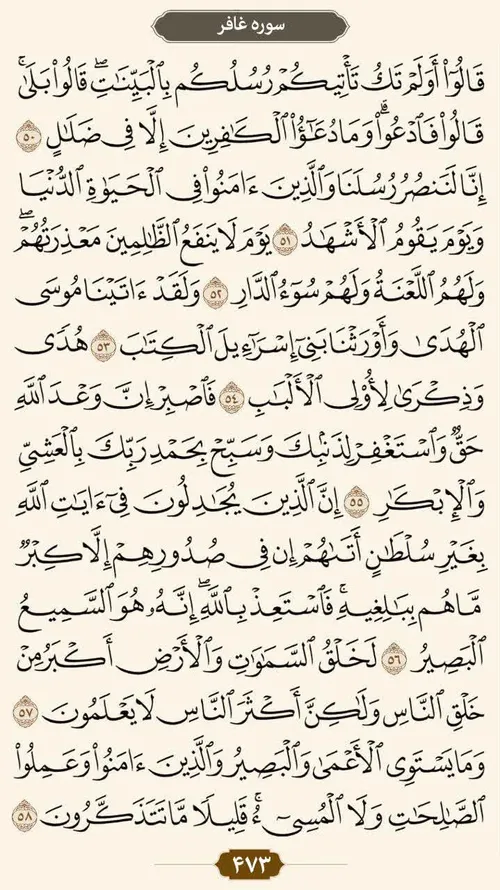 سوره غافر
قَالُوٓا۟ أَوَلَمْ تَكُ تَأْتِيكُمْ رُسُلُكُم بِٱلْبَيِّنَـٰتِ ۖ قَالُوا۟ بَلَىٰ ۚ
قَالُوا۟ فَٱدْعُوا۟ ۗ وَمَا دُعَـٰٓؤُا۟ ٱلْكَـٰفِرِينَ إِلَّا فِى ضَلَـٰلٍ ﴿٥٠﴾
إِنَّا لَنَنصُرُ رُسُلَنَا وَٱلَّذِينَ ءَامَنُوا۟ فِى ٱلْحَيَوٰةِ ٱلدُّنْيَا
وَيَوْمَ يَقُومُ ٱلْأَشْهَـٰدُ ﴿٥١﴾ يَوْمَ لَا يَنفَعُ ٱلظَّـٰلِمِينَ مَعْذِرَتُهُمْ ۖ
وَلَهُمُ ٱللَّعْنَةُ وَلَهُمْ سُوٓءُ ٱلدَّارِ ﴿٥٢﴾ وَلَقَدْ ءَاتَيْنَا مُوسَى
ٱلْهُدَىٰ وَأَوْرَثْنَا بَنِىٓ إِسْرَٰٓءِيلَ ٱلْكِتَـٰبَ ﴿٥٣﴾ هُدًى
وَذِكْرَىٰ لِأُو۟لِى ٱلْأَلْبَـٰبِ ﴿٥٤﴾ فَٱصْبِرْ إِنَّ وَعْدَ ٱللَّهِ
حَقٌّ وَٱسْتَغْفِرْ لِذَنۢبِكَ وَسَبِّحْ بِحَمْدِ رَبِّكَ بِٱلْعَشِىِّ
وَٱلْإِبْكَـٰرِ ﴿٥٥﴾ إِنَّ ٱلَّذِينَ يُجَـٰدِلُونَ فِىٓ ءَايَـٰتِ ٱللَّهِ
بِغَيْرِ سُلْطَـٰنٍ أَتَىٰهُمْ ۙ إِن فِى صُدُورِهِمْ إِلَّا كِبْرٌ
مَّا هُم بِبَـٰلِغِيهِ ۚ فَٱسْتَعِذْ بِٱللَّهِ ۖ إِنَّهُۥ هُوَ ٱلسَّمِيعُ
ٱلْبَصِيرُ ﴿٥٦﴾ لَخَلْقُ ٱلسَّمَـٰوَٰتِ وَٱلْأَرْضِ أَكْبَرُ مِنْ
خَلْقِ ٱلنَّاسِ وَلَـٰكِنَّ أَكْثَرَ ٱلنَّاسِ لَا يَعْلَمُونَ ﴿٥٧﴾
وَمَا يَسْتَوِى ٱلْأَعْمَىٰ وَٱلْبَصِيرُ وَٱلَّذِينَ ءَامَنُوا۟ وَعَمِلُوا۟
ٱلصَّـٰلِحَـٰتِ وَلَا ٱلْمُسِىٓءُ ۚ قَلِيلًا مَّا تَتَذَكَّرُونَ ﴿٥٨﴾
۴۷۳